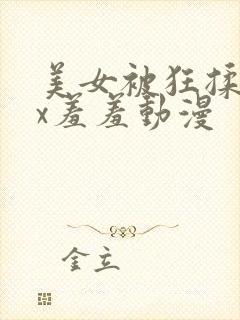 美女被狂揉
x羞羞動漫
金立